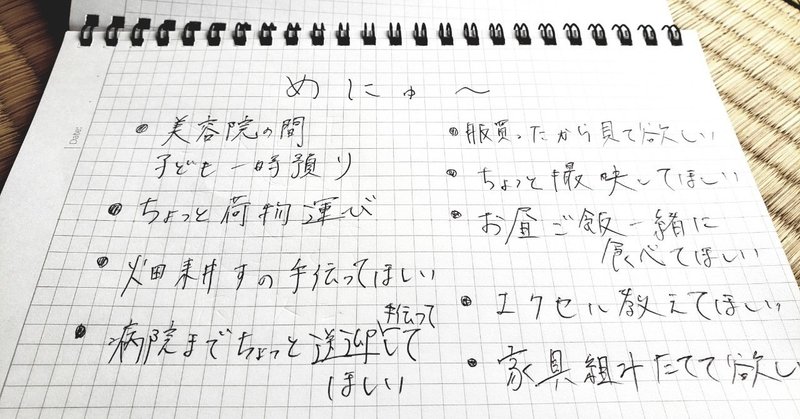 Date:
めにゅ〜
・美容院の間
子ども一時預り
・ちょっと荷物運び
・畑耕すの手伝ってほしい
・病院までちょっと送迎して
手伝って
ほしい
・服買ったから見て欲しい
・ちょっと撮映してほしい
・お昼ご飯一緒に
食べてほしい
・エクセル教えてほしい
・家具組みたてて欲しい